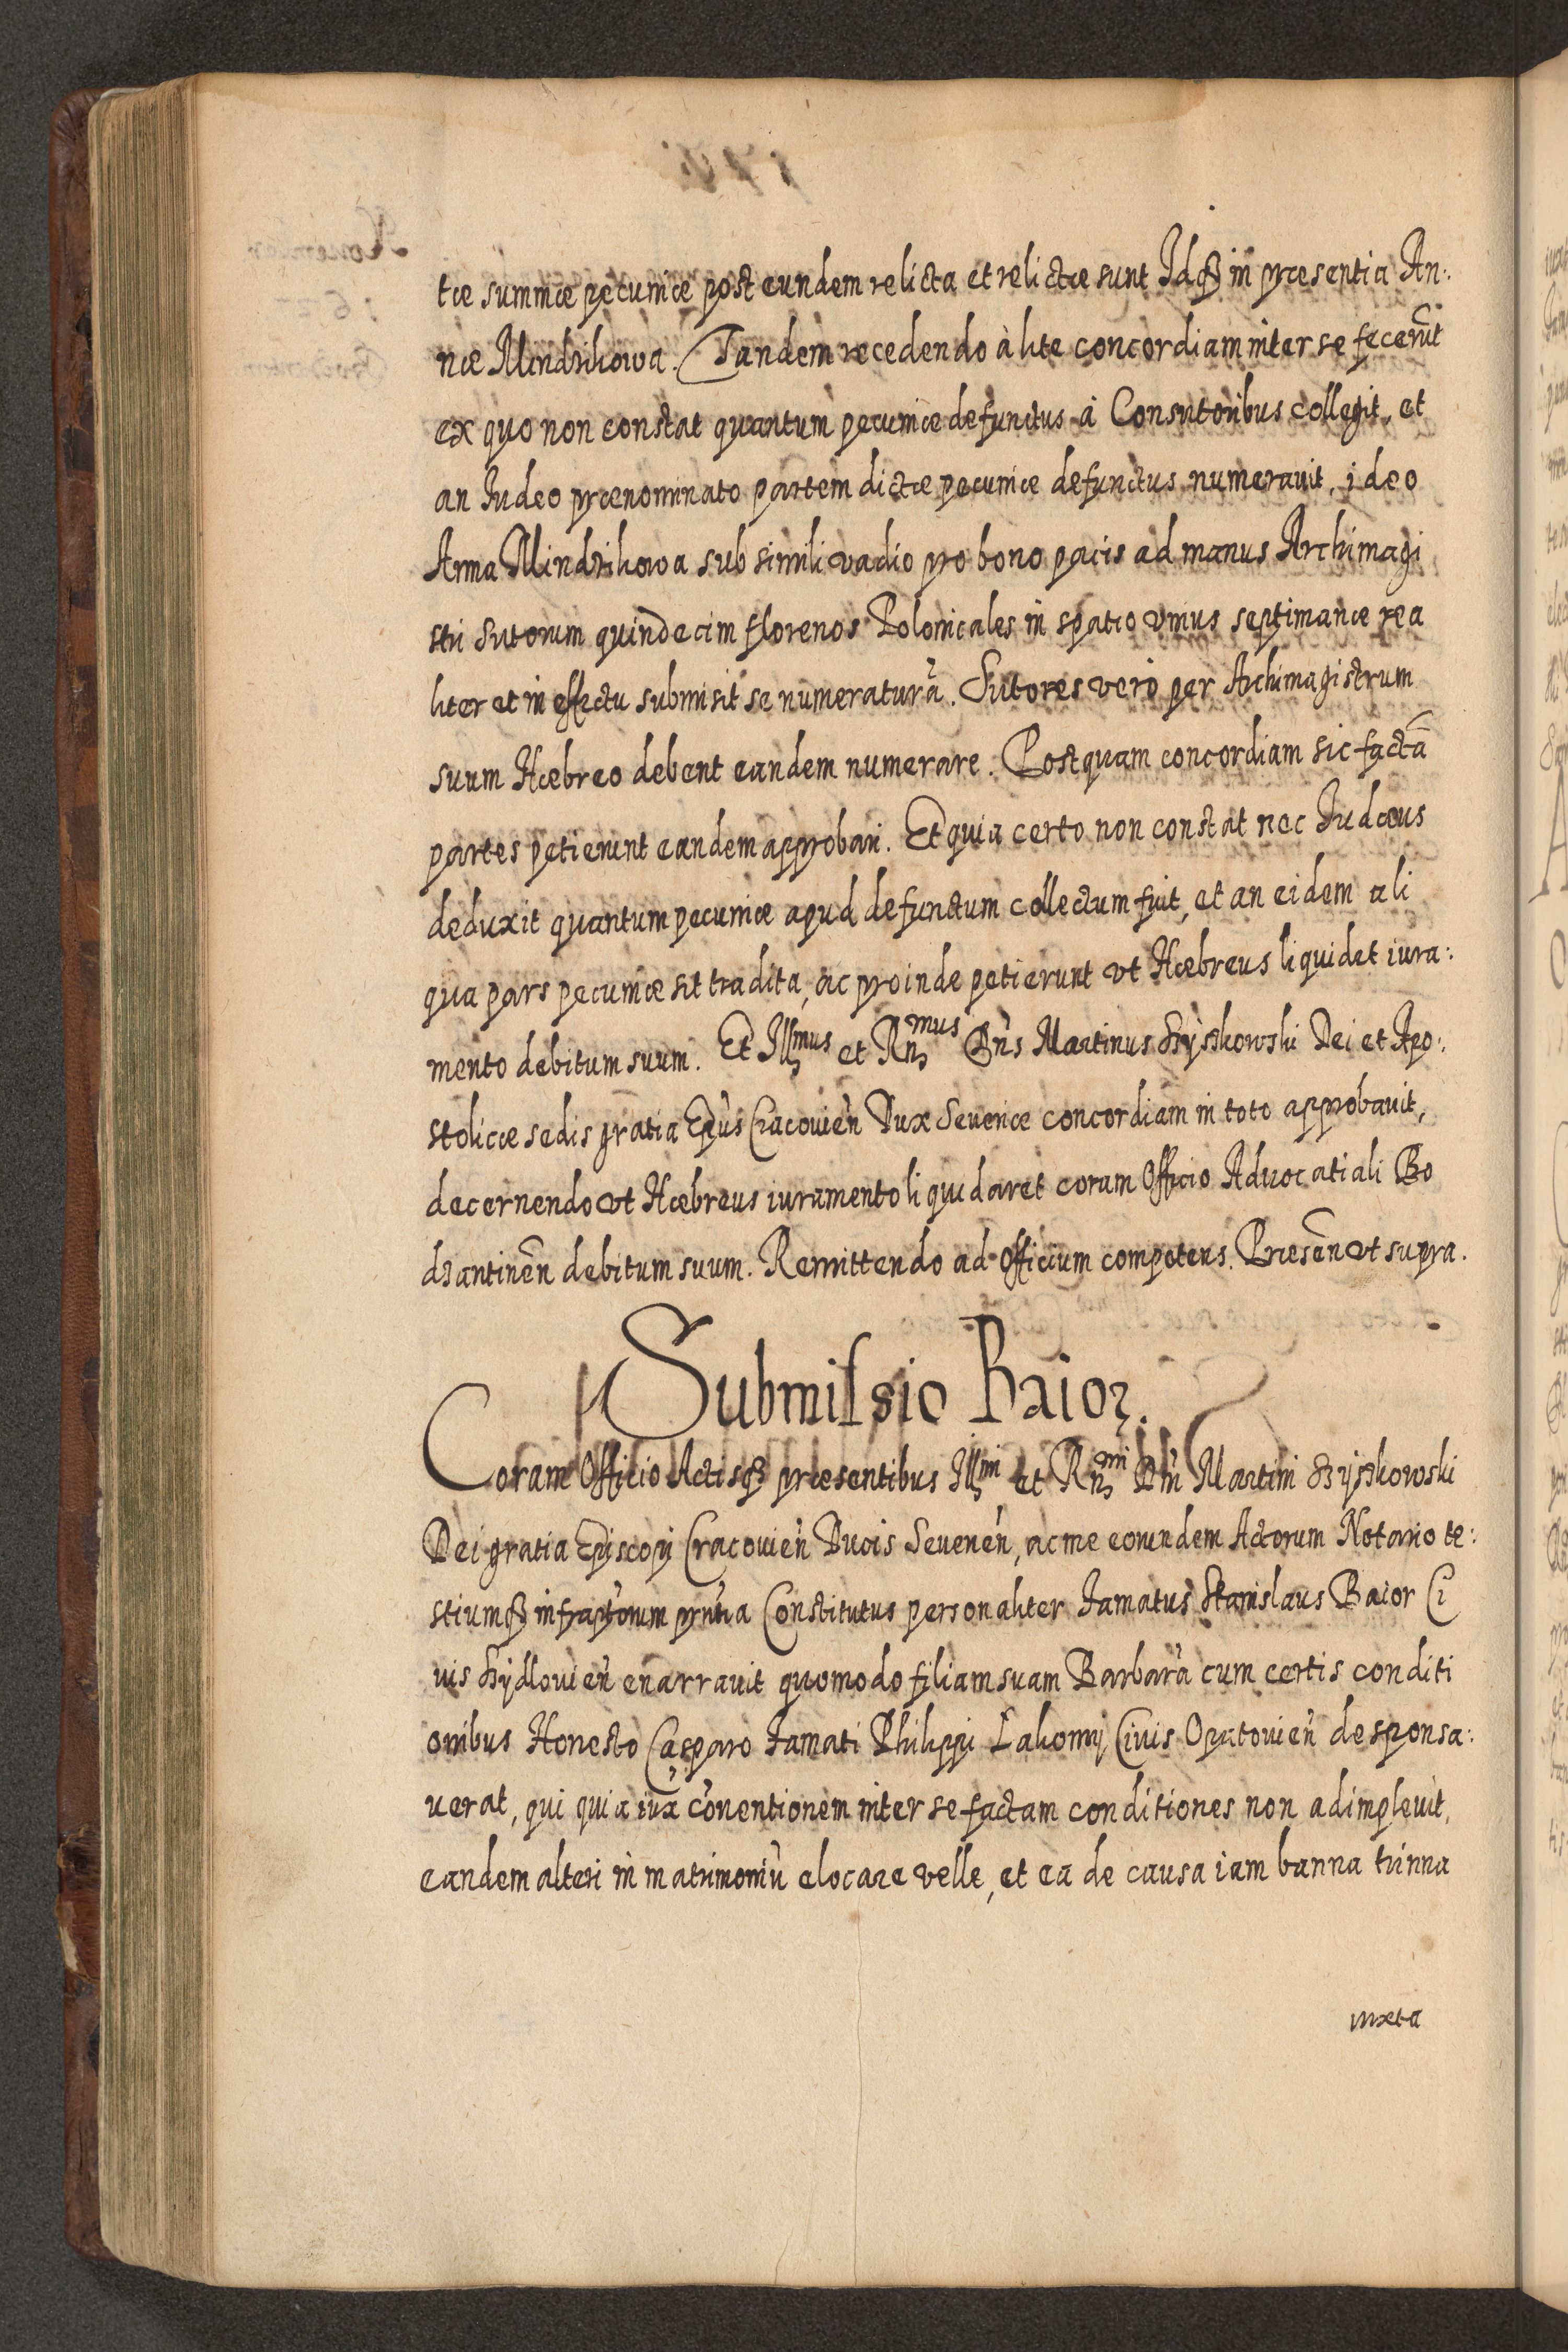 tæ summæ pecuniæ post eundem relicta et relictæ sunt Idq3 in præsentia An:
næ Mindzikowa. Tandem recedendo à lite concordiam inter se fecerũt
ex quo non constat quantum pecuniæ defunctus à Consutoribus collegit, et
an Iudeo prænominato partem dictæ pecuniæ defunctus numerauit, ideo
Anna Mindzikowa sub simili vadio pro bono pacis ad manus Archimagi
stri Sutorum quindecim florenos Polonicales in spatio vnius septimanæ rea
liter et in effectu submisit se numeraturã. Sutores vero per Archimagistrum
suum Hæbreo debent eandem numerare. Postquam concordiam sic factã
partes petierunt eandem approbari. Et quia certo non constat nec Iudæus
deduxit quantum pecuniæ apud defunctum collectum fuit, et an eidem ali
qua pars pecuniæ sit tradita, ac proinde petierunt vt Hæbreus liquidet iura:
mento debitum suum. Et Illmus et Rnmus Dns Martinus Szyszkowski Dei et Apo:
stolicæ sedis gratia Epus Cracouien Dux Seueriæ concordiam in toto approbauit,
decernendo vt Hæbreus iuramento liquidaret coram Officio Aduocatiali Bo
dzantinen debitum suum. Remittendo ad Officium competens. Præsen vt supra.
Submissio Baior.
Coram Officio Actisq3 præsentibus Illmi et Rnmi Dni Martini Szyszkowski
Dei gratia Episcopi Cracouien Ducis Seuerien, ac me eorundem Actorum Notario te:
stiumq3 infraptorum prntia Constitutus personaliter Famatus Stanislaus Baior Ci
uis Szydlouien enarrauit quomodo filiam suam Barbarã cum certis conditi
onibus Honesto Casparo Famati Philippi Lakomy Ciuis Opatouien desponsa:
uerat, qui quia iuxa conentionem inter se factam conditiones non adimpleuit,
eandem alteri in matrimoniũ elocare velle, et ea de causa iam banna trinna
iuxta